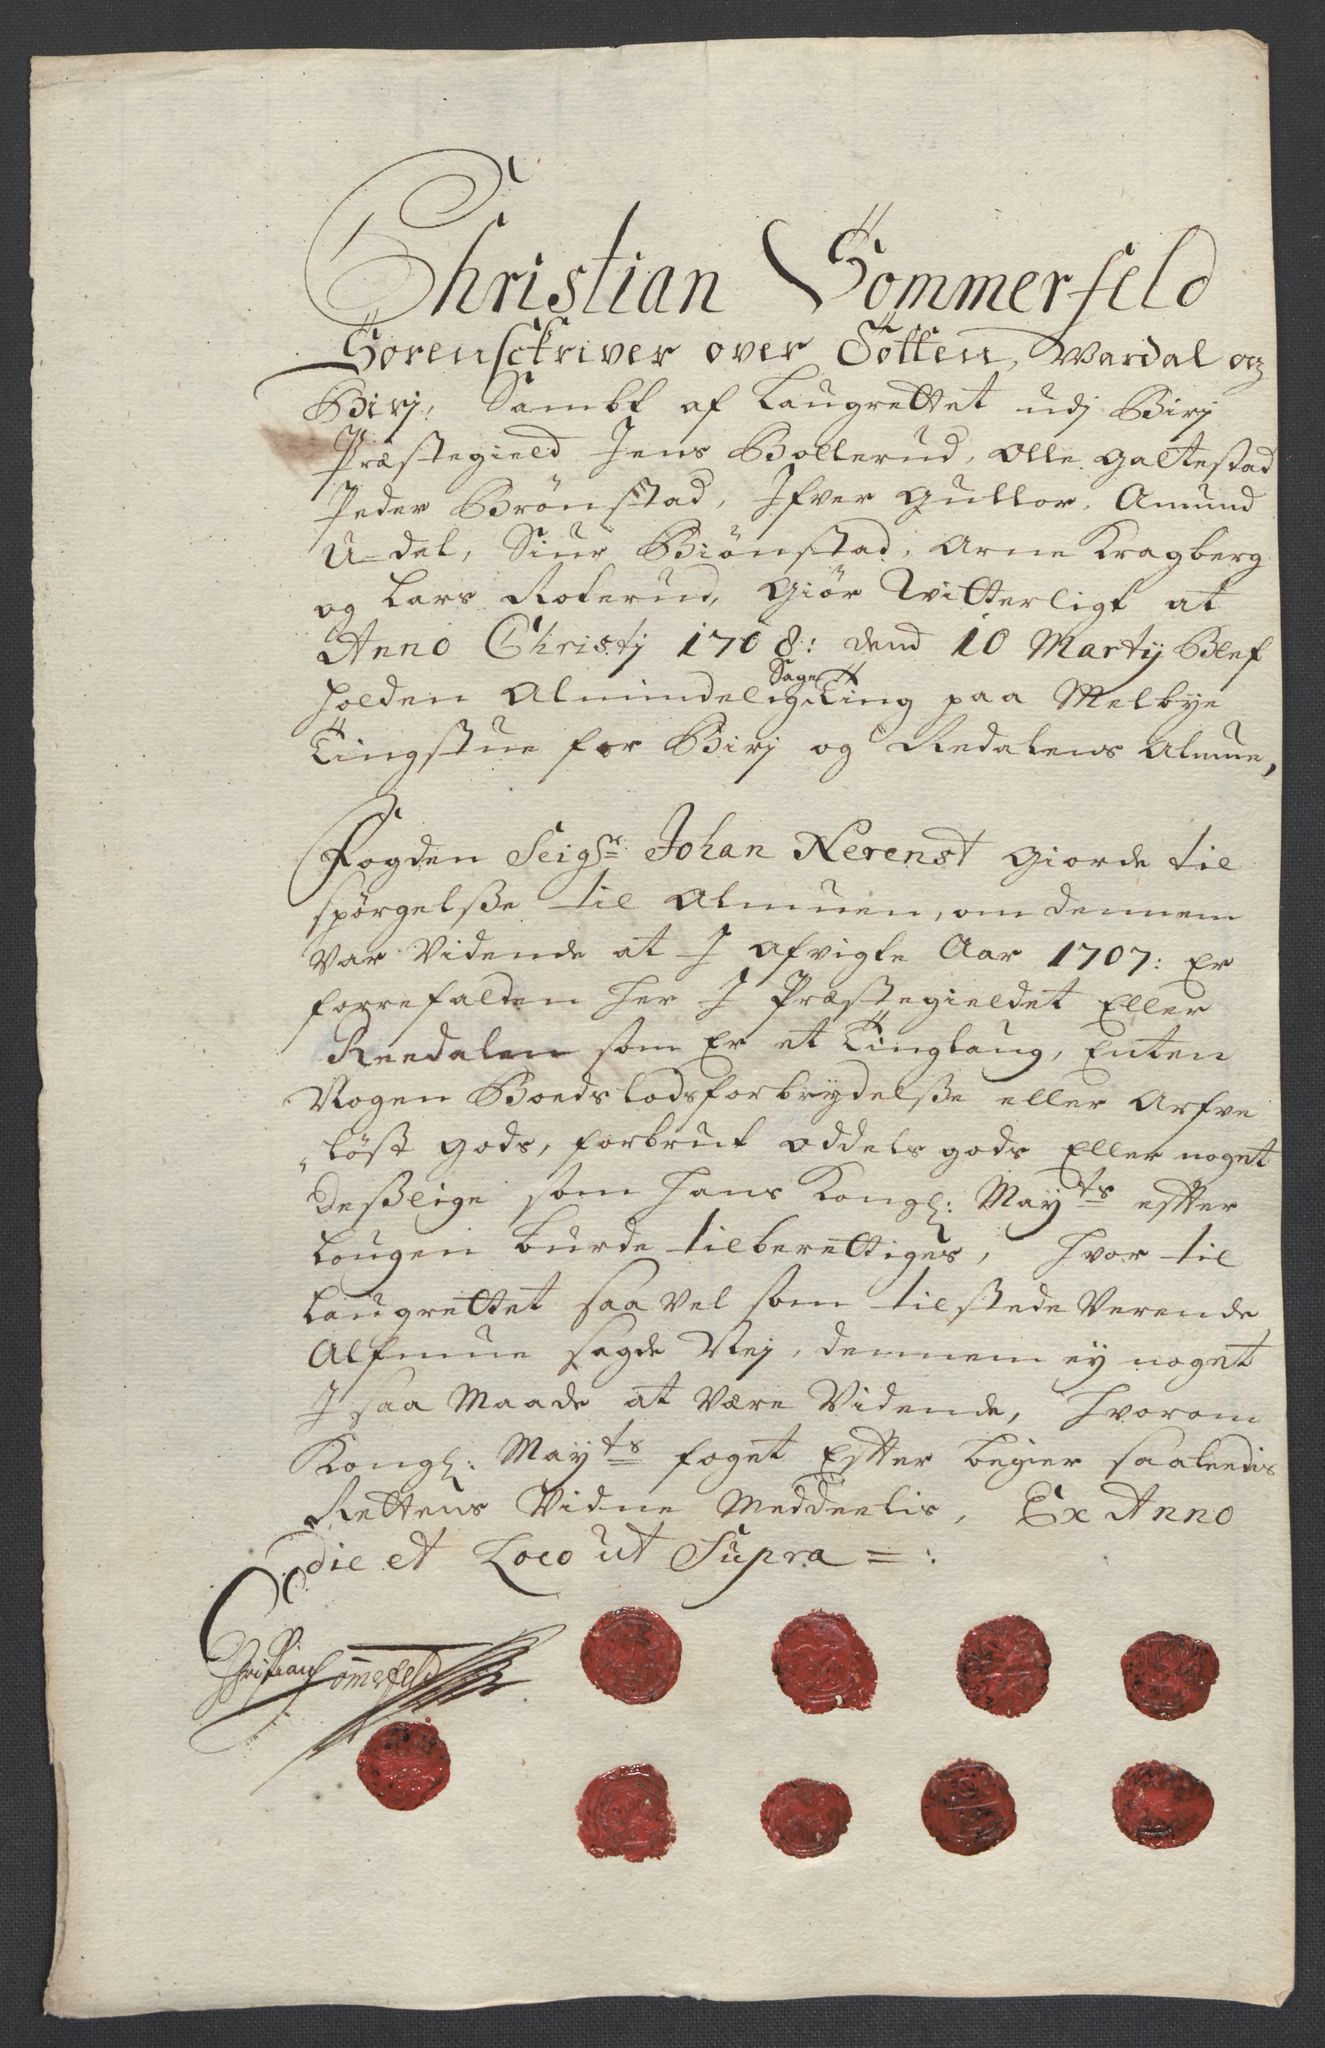 Christian Sommerfeld
Sorenschriver over Totten, Wardal og
Birj, Sambt af Laugrettet udj Birj
Præstegield Jens Bollerud, Olle Galtestad
Peder Brønstad, Ifver Gullor, Amund
U=del, Siur Biønstad, Arne Kragberg
og Lars Roterud, Giør Witterligt at
Anno Christj 1708: dend 10 Martij Blef
holden Almindelig Sage Ting paa Melbye
Tingstue for Birj og Redalens Almue,
Fogden Seigr Johan Nerenst giorde til
spørgelsße til Almuen, om dennem
var Vidende at J afvigte Aar 1707: Er
forrefalden her J Præstegieldet Eller
Reedalen som Er et Tinglaug, Enten
Nogen Boedslodsforbrydelsße eller Arfve
løst gods, forbrut oddels gods Eller noget
deslige som hans Kongl: Mayts efter
Lougen burde tilberettiges, hvor til
Laugrettet saavel som tilstede Verende
Almue sagde Nej, dennem ey noget
J saa Maade at være Vidende, hvorom
Kongl: Mayts foget Efter begier saaleedis
Rettens Vidne Meddeelis, Ex Anno
die et Loco ut Supra =:
Christian Somerfeld